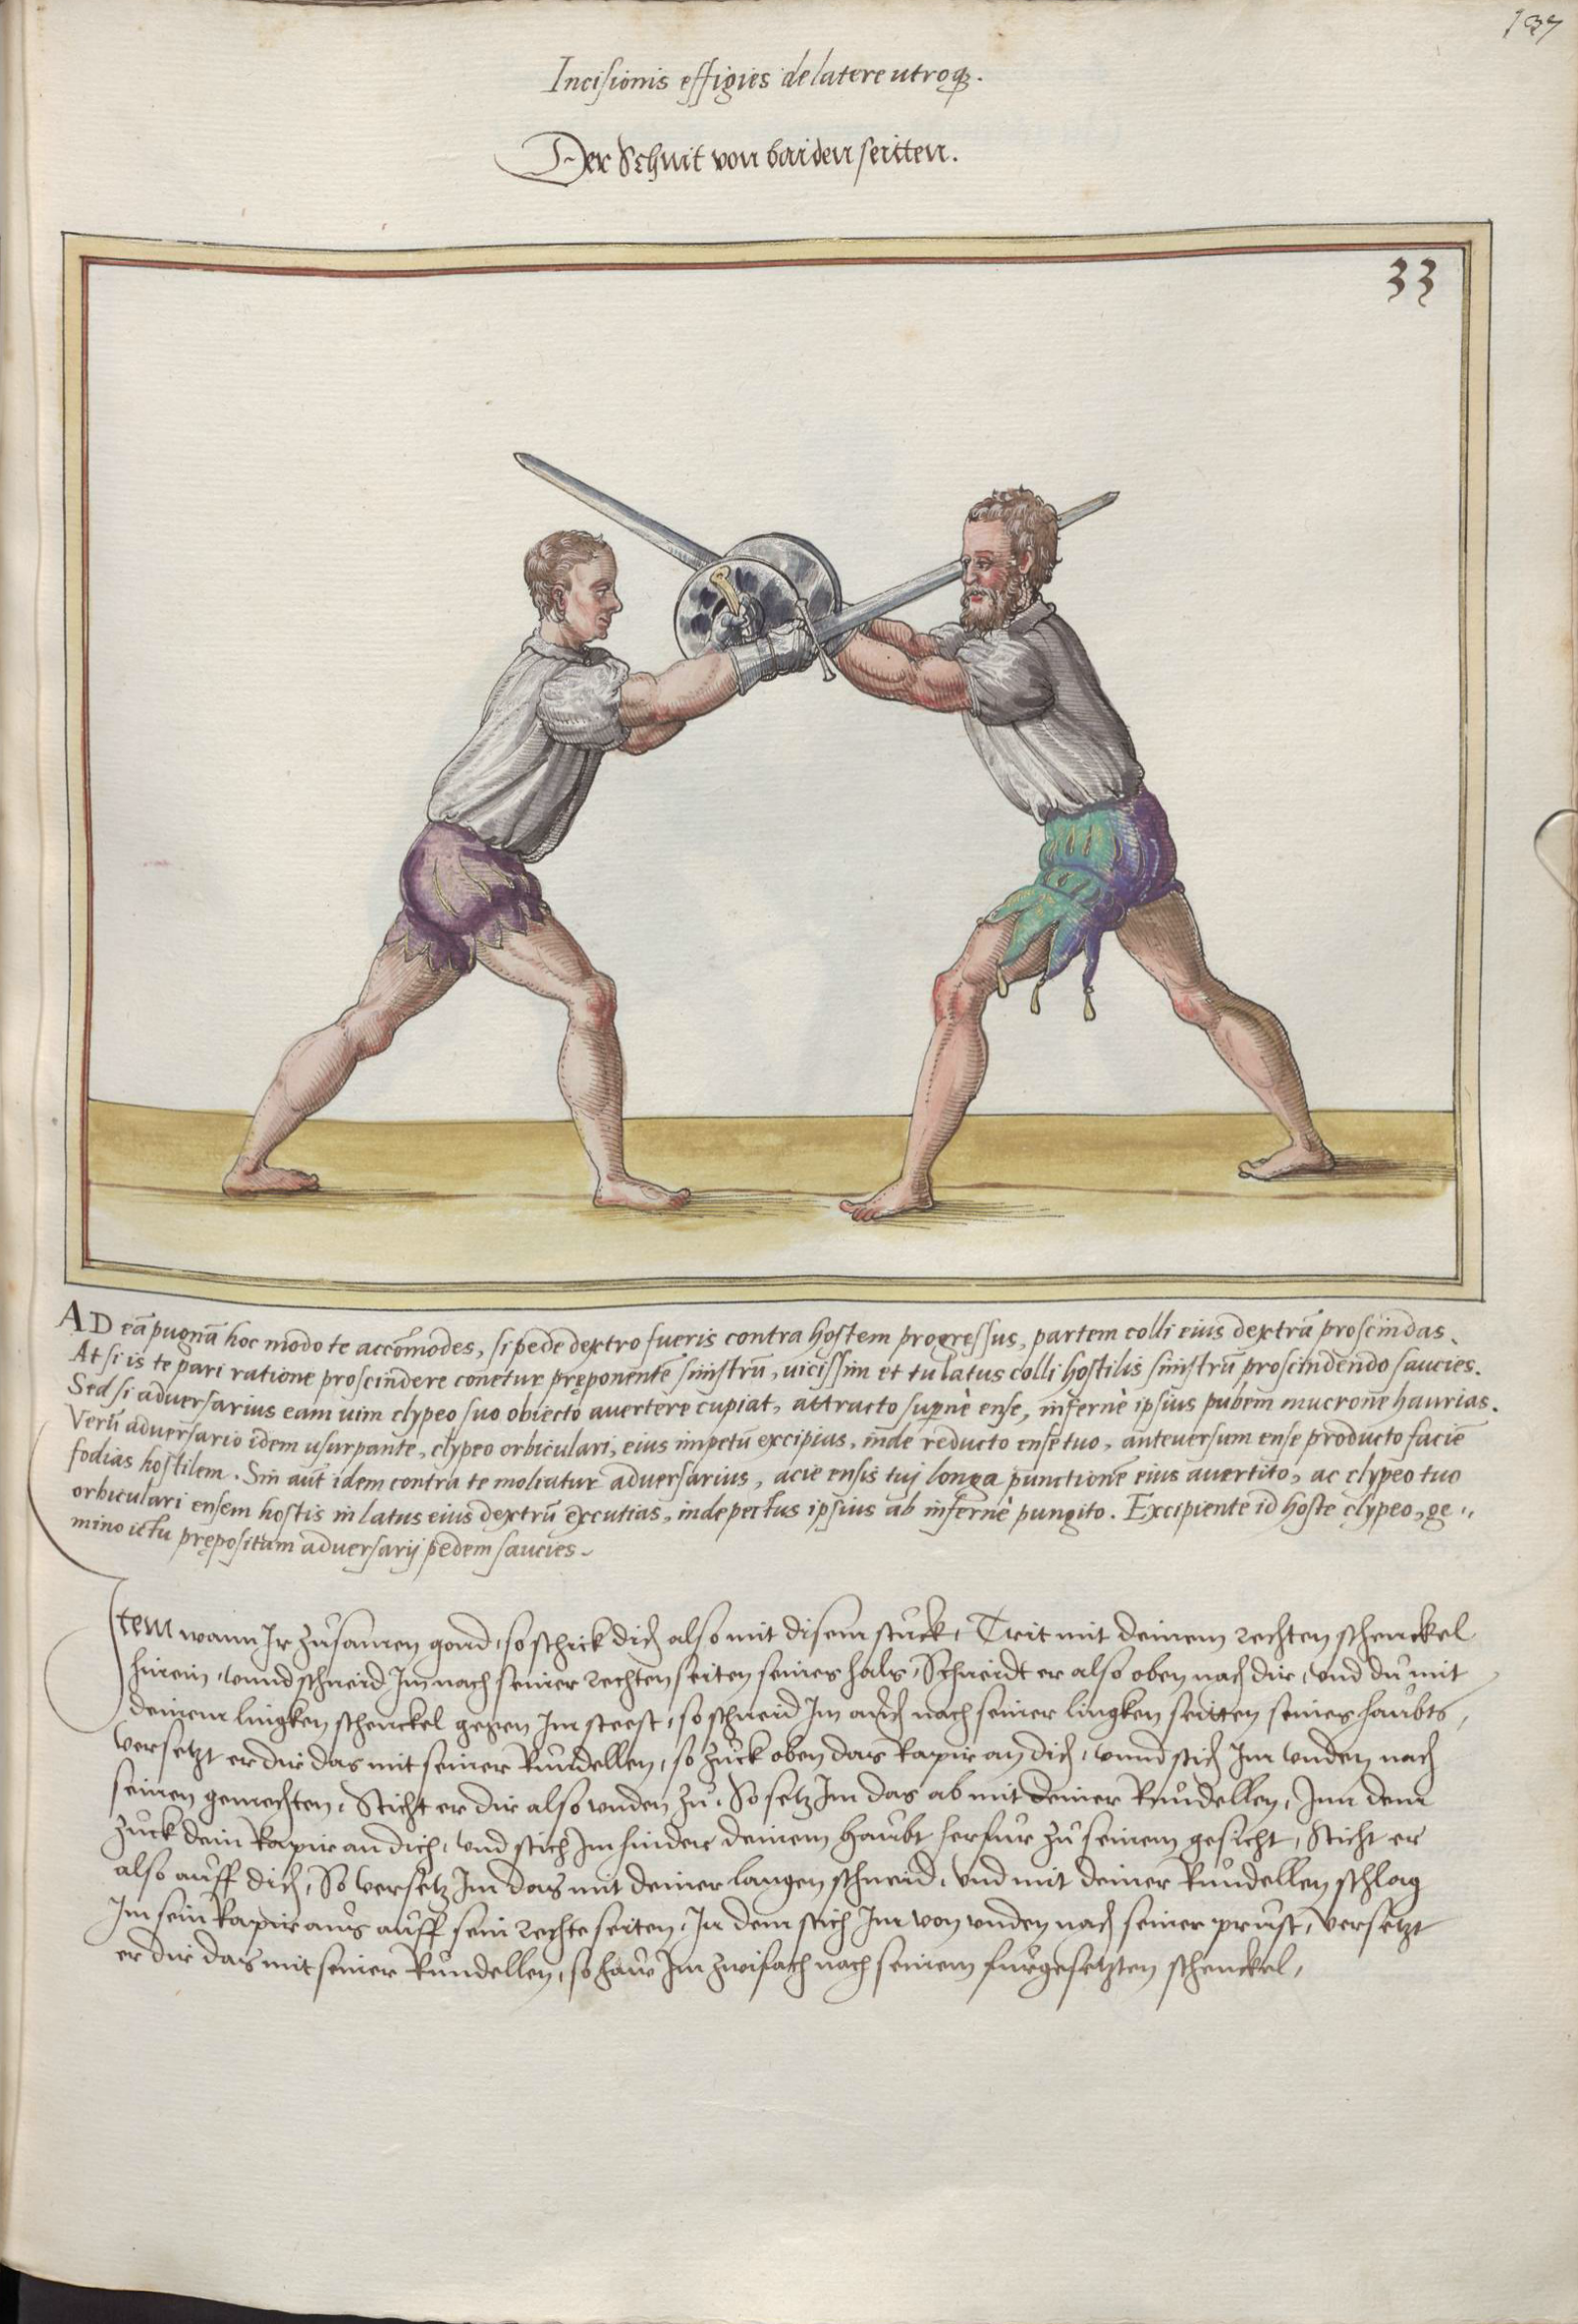 137
Incisionis effigies de latere utroq̃.
Der Schnit von baiden seitten.
33
AD eã pugnã hoc modo te accõmodes, si pede dextro fueris contra hostem progressus, partem colli eius dextrã proscindas.
At si is te pari ratione proscindere conetur pręponentẽ sinistrũ, vicissim et tu latus colli hostilis sinistrũ proscindendo saucies.
Sed si adversarius eam vim clypeo suo obiecto avertere cupiat, attracto supernè ense, infernè ipsius pubem mucrone haurias.
Verũ adversario idem usurpante, clypeo orbiculari, eius impetũ excipias, inde reducto ense tuo, anteversum ense producto faciẽ
fodias hostilem. Sin aũt idem contra te moliatur adversarius, acie ensis tuj longa punctionẽ eius avertito, ac clypeo tuo
orbiculari ensem hostis in latus eius dextrũ excutias, inde pectus ipsius ab infernè pungito. Excipiente id hoste clypeo, ge„
mino ictu prępositam adversarij pedem saucies.
Item wann Ir zůsamen gond, so schick dich also mit disem stuck, Trit mit deinem rechten schenckel
hinein, vnnd schneid Im nach seiner rechten seiten seines hals, Schneidt er also oben nach dir, vnd dů mit
deinem lingken schenckel gegen Im steest, so schneid Im auch nach seiner lingken seitten seines haubts,
versetzt er dir das mit seiner Rundellen, so zuck oben das Rapir an dich, vnnd stich Im vnden nach
seinen gemechten, Sticht er dir also vnden zů, So setz Im das ab mit deiner Rundellen, Inn dem
zuck dein Rapir an dich, vnd stich Im hinder deinem haubt herfur zů seinem gesicht, Sticht er
also auff dich, So versetz Im das mit deiner langen schneid, vnd mit deiner Rundellen schlag
Im sein Rapir aus auff sein rechte seiten, In dem stich Im von vnden nach seiner prust, versetzt
er dir das mit seiner Rundellen, so haw Im zwifach nach seinem furgesetzten schenckel,